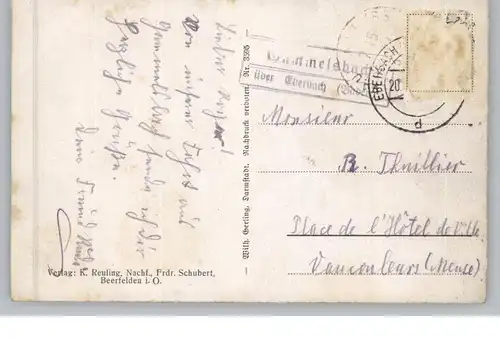 Lieber
Von unserer Fahrt auf
sende ich Dir
herzliche Grüße.
Dein Freund
Verlag: K. Reuling, Nachf., Frdr. Schubert,
Beerfelden i. O.
Wilh. Gerling, Darmstadt. Nachdruck verboten. Nr. 3395
über Eberbach
EBERBACH
20
d
Monsieur
R. Thuillier
Place de l'Hôtel de Ville
Vaucouleurs (Meuse)